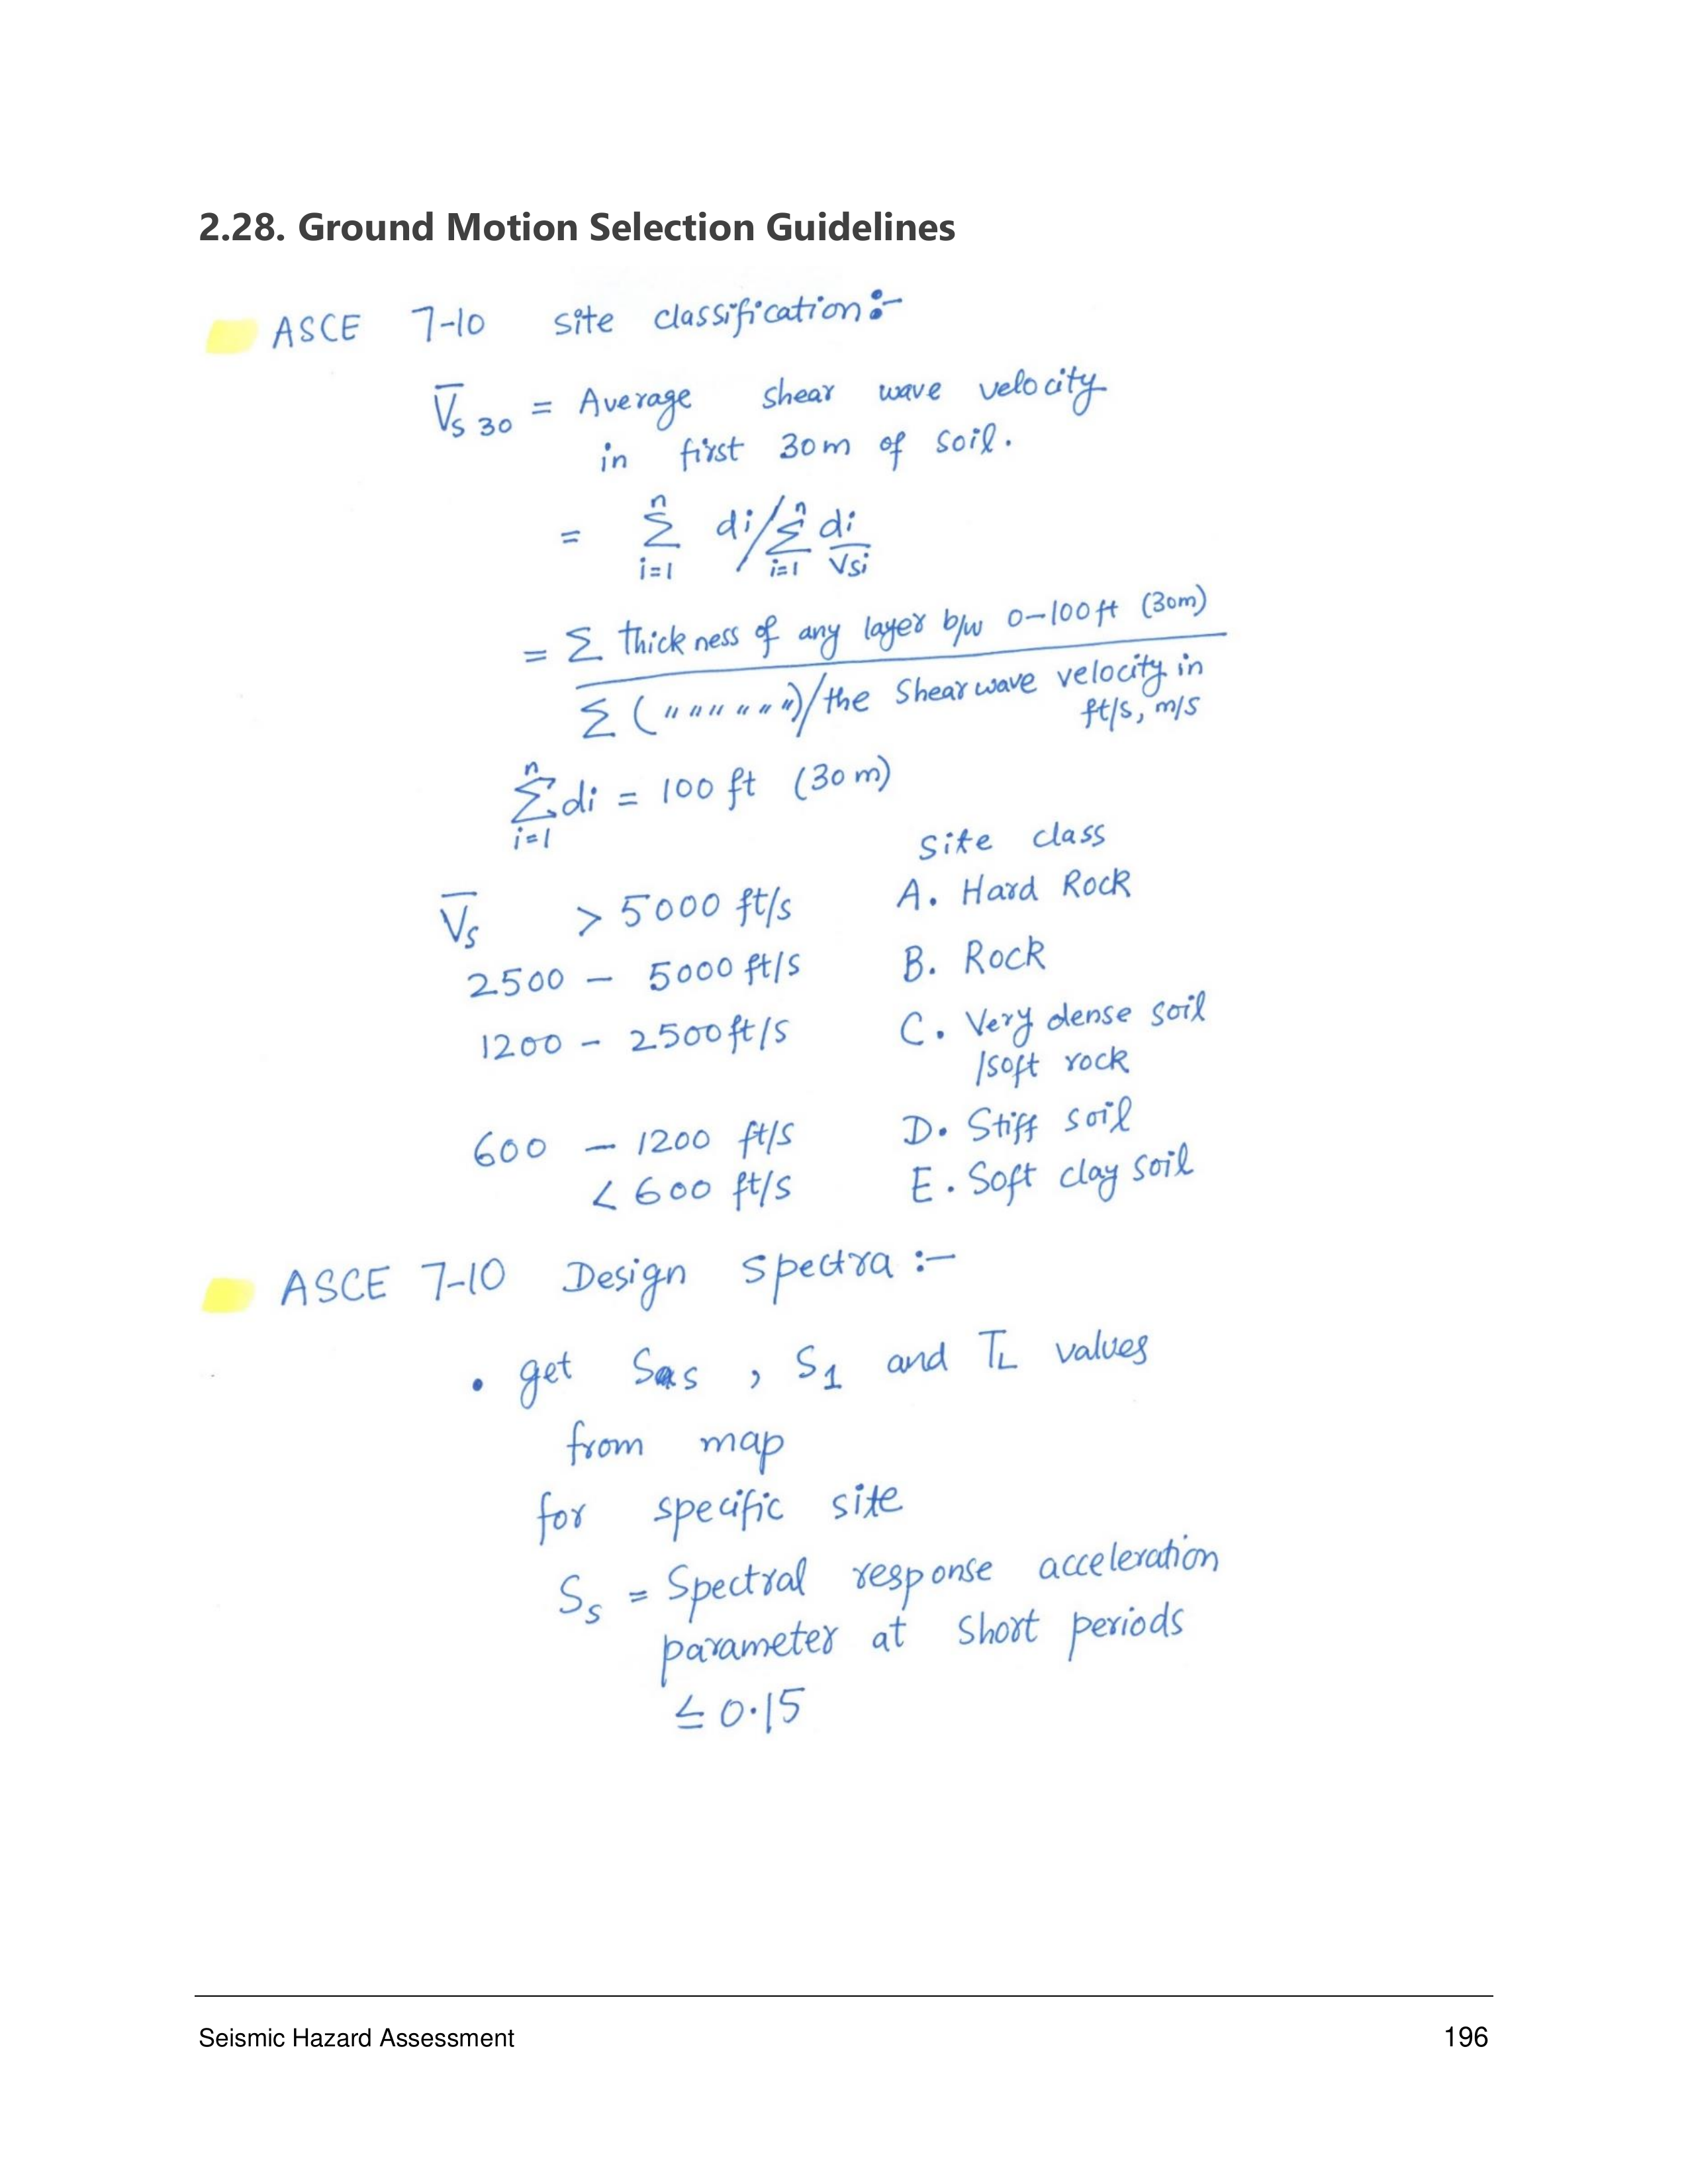 2.28. Ground Motion Selection Guidelines
ASCE 7-10 site classification:-
V̅s 30 = Average shear wave velocity
in first 30m of soil.
= n Σ i=1 di / n Σ i=1 di/Vsi
= Σ thickness of any layer b/w 0-100ft (30m)
Σ (〃〃〃〃〃〃)/the Shear wave velocity in
ft/s, m/s
n Σ i=1 di = 100 ft (30 m)
Site class
V̅s > 5000 ft/s A. Hard Rock
2500 - 5000 ft/s B. Rock
1200 - 2500 ft/s C. Very dense soil
/soft rock
600 - 1200 ft/s D. Stiff soil
< 600 ft/s E. Soft clay soil
ASCE 7-10 Design Spectra :-
• get Ss , S1 and TL values
from map
for specific site
Ss = Spectral response acceleration
parameter at short periods
≤ 0.15
Seismic Hazard Assessment 196